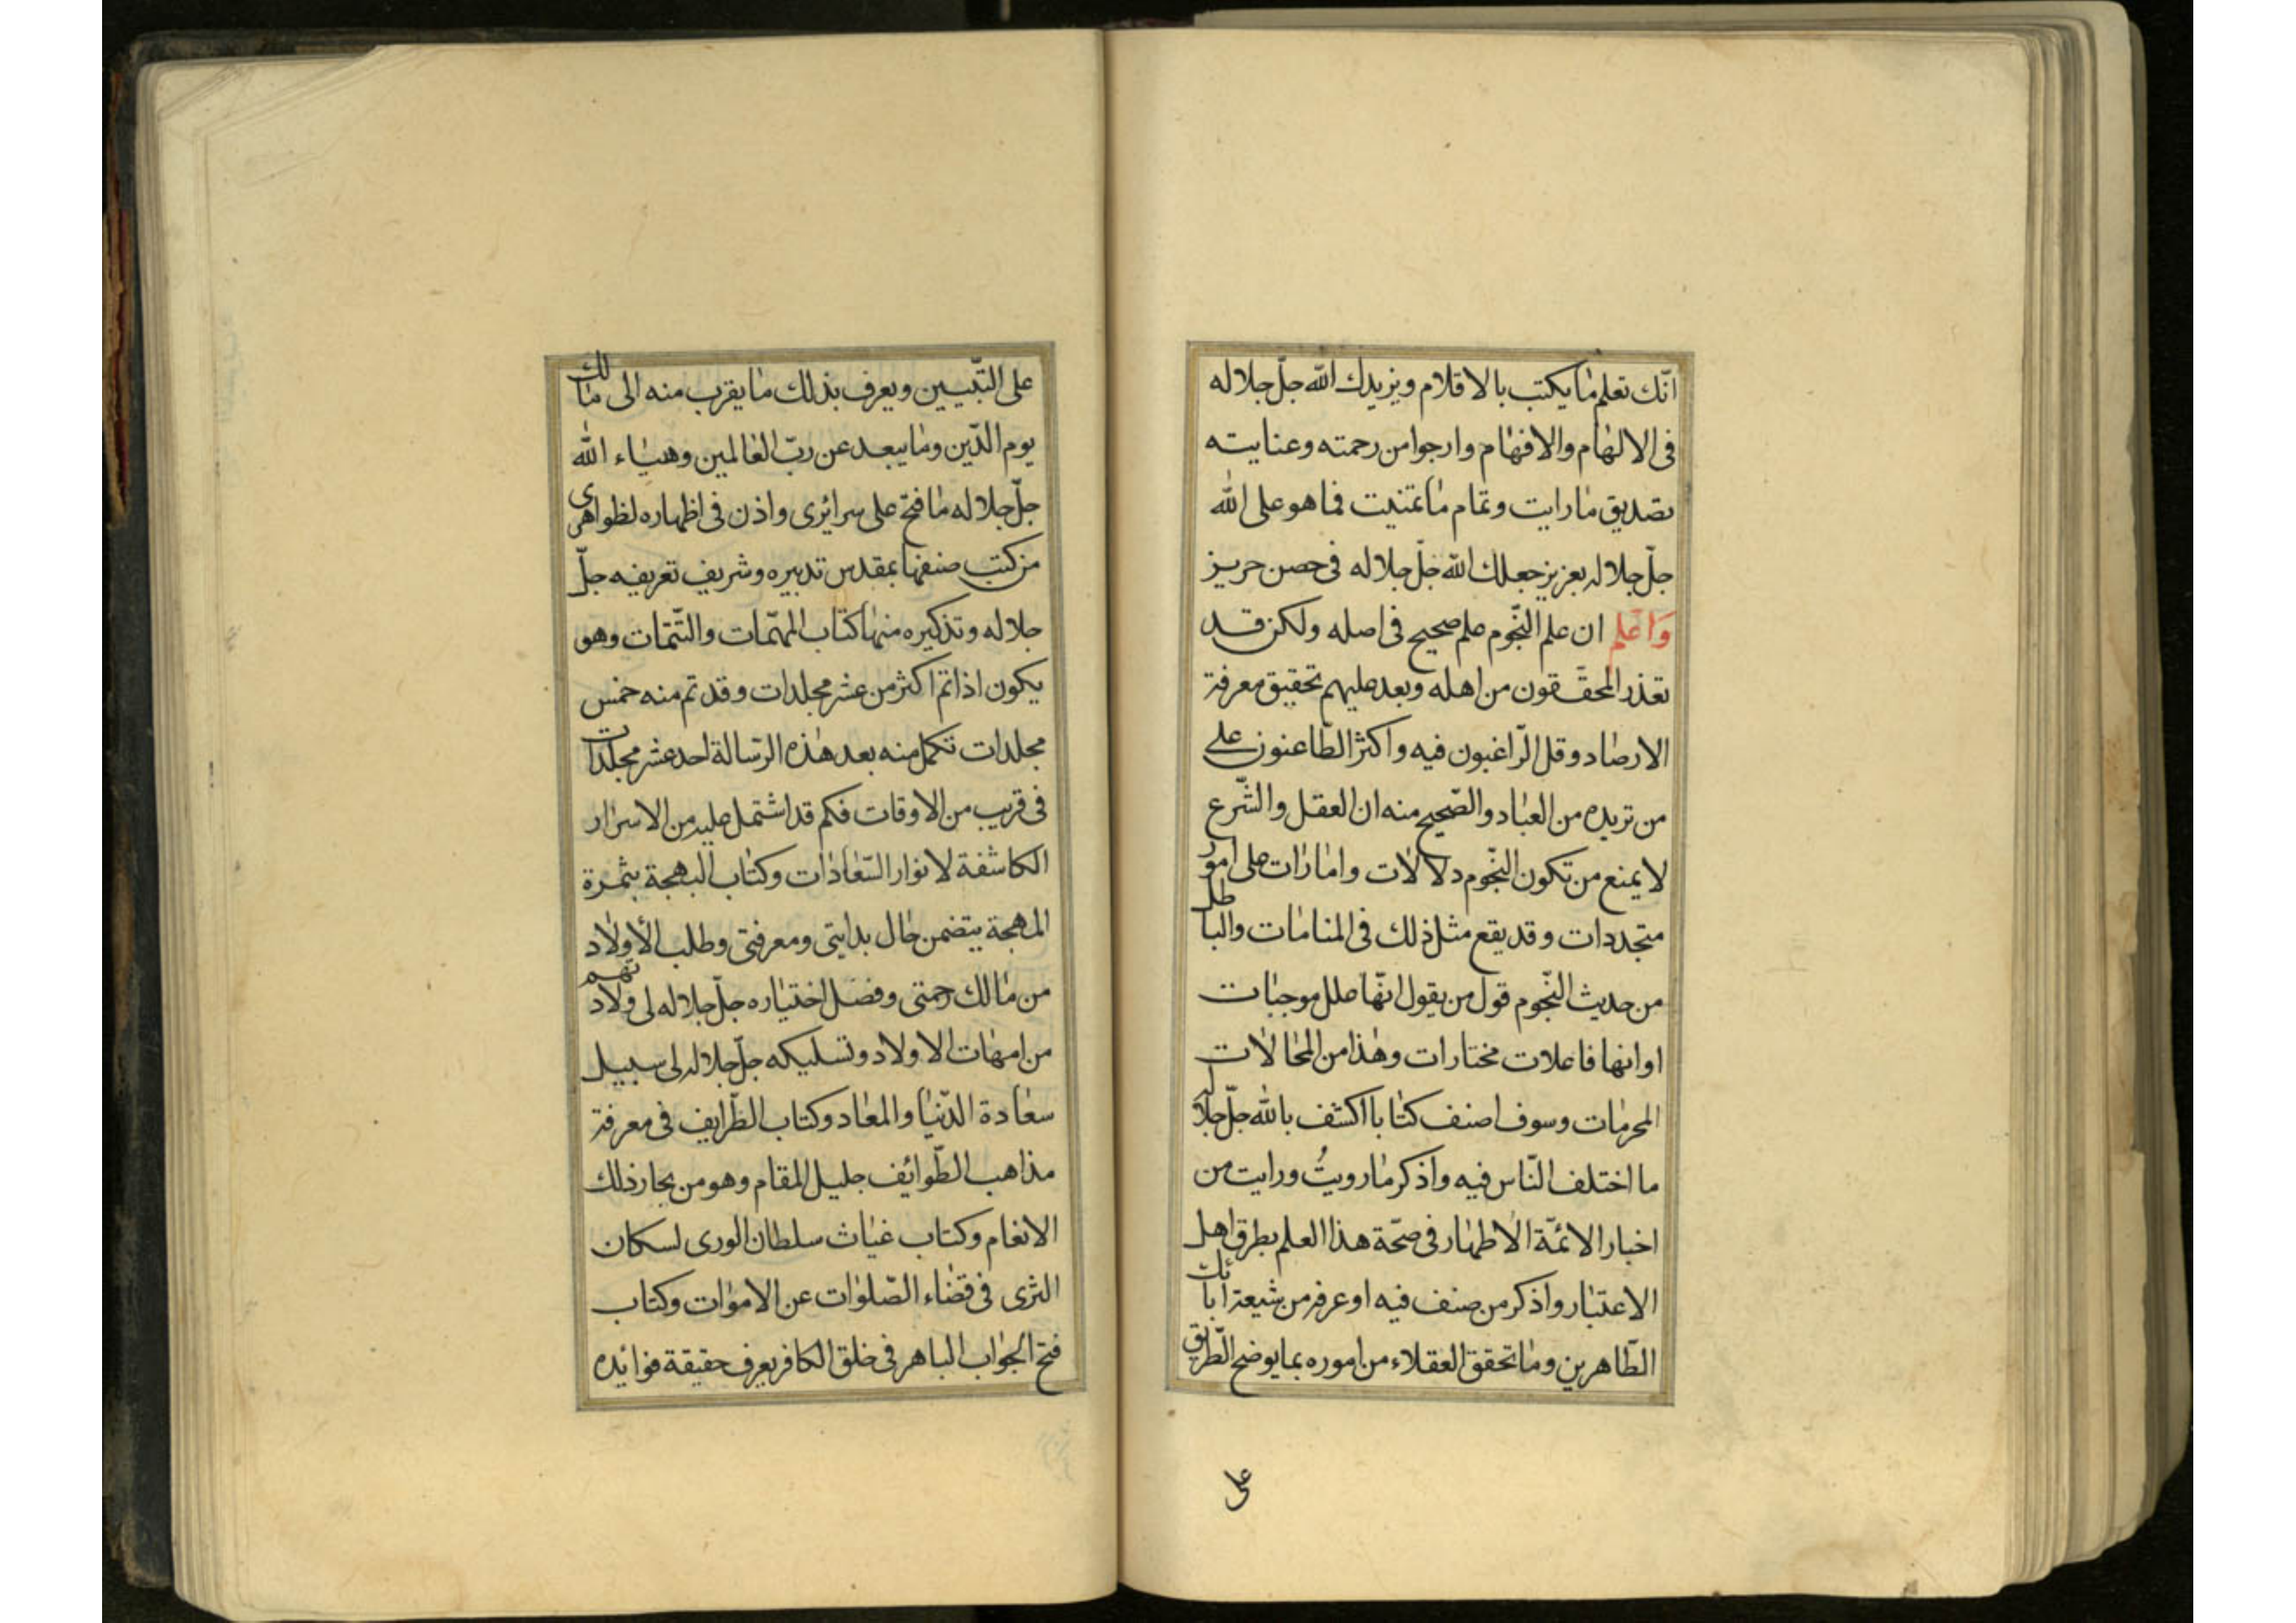 انّك تعلم ما يكتب بالاقلام ويزيدك الله جلّ جلاله
فى الالهام والافهام وارجوا من رحمته وعنايته
تصديق ما رايت وتمام ما تمنيت فما هو على الله
جلّ جلاله بعزيز جعلك الله جلّ جلاله فى حصن حريز
وَاعلم ان علم النّجوم علم صحيح فى اصله ولكن قد
تعذر المحقّقون من اهله وبعد عليهم تحقيق معرفة
الارصاد وقل الرّاغبون فيه واكثر الطّاعنون على
من تريده من العباد والصّحيح منه ان العقل والشّرع
لا يمنع من تكون النّجوم دلالات وامارات على امور
متجددات وقد يقع مثل ذلك فى المنامات والباطل
من حديث النّجوم قول من يقول انّها علل موجبات
او انها فاعلات مختارات وهذا من المحالات
المحرمات وسوف اصنف كتابا اكشف بالله جلّ جلاله
ما اختلف النّاس فيه واذكر ما رويتُ ورايت من
اخبار الائمّة الاطهار فى صحّة هذا العلم بطرق اهل
الاعتبار واذكر من صنف فيه او عرفه من شيعة ابائك
الطّاهرين وما تحقق العقلاء من اموره بما يوضح الطّريق
على
على التّبيين ويعرف بذلك ما يقرب منه الى مالك
يوم الدّين وما يبعد عن ربّ العالمين وهياء الله
جلّ جلاله ما فتح على سرائرى واذن فى اظهاره لظواهرى
من كتب صنفها بمقدس تدبيره وشريف تعريفه جلّ
جلاله وتذكيره منها كتاب المهمّات والتتمّات وهو
يكون اذا تم اكثر من عشر مجلدات وقد تم منه خمس
مجلدات تكمل منه بعد هذه الرّسالة احد عشر مجلدات
فى قريب من الاوقات فكم قد اشتمل عليه من الاسرار
الكاشفة لانوار السّعادات وكتاب البهجة بثمرة
المهجة يتضمن حال بدايتى ومعرفتى وطلب الأولاد
من مالك رحمتى وفضل اختياره جلّ جلاله لى ولادتهم
من امهات الاولاد وتسليكه جلّ جلاله لى سبيل
سعادة الدّنيا والمعاد وكتاب الطّرايف فى معرفة
مذاهب الطّوائف جليل المقام وهو من بحار ذلك
الانعام وكتاب غياث سلطان الورى لسكان
الثرى فى قضاء الصّلوات عن الاموات وكتاب
فتح الجواب الباهر فى خلق الكافر يعرف حقيقة فوائده